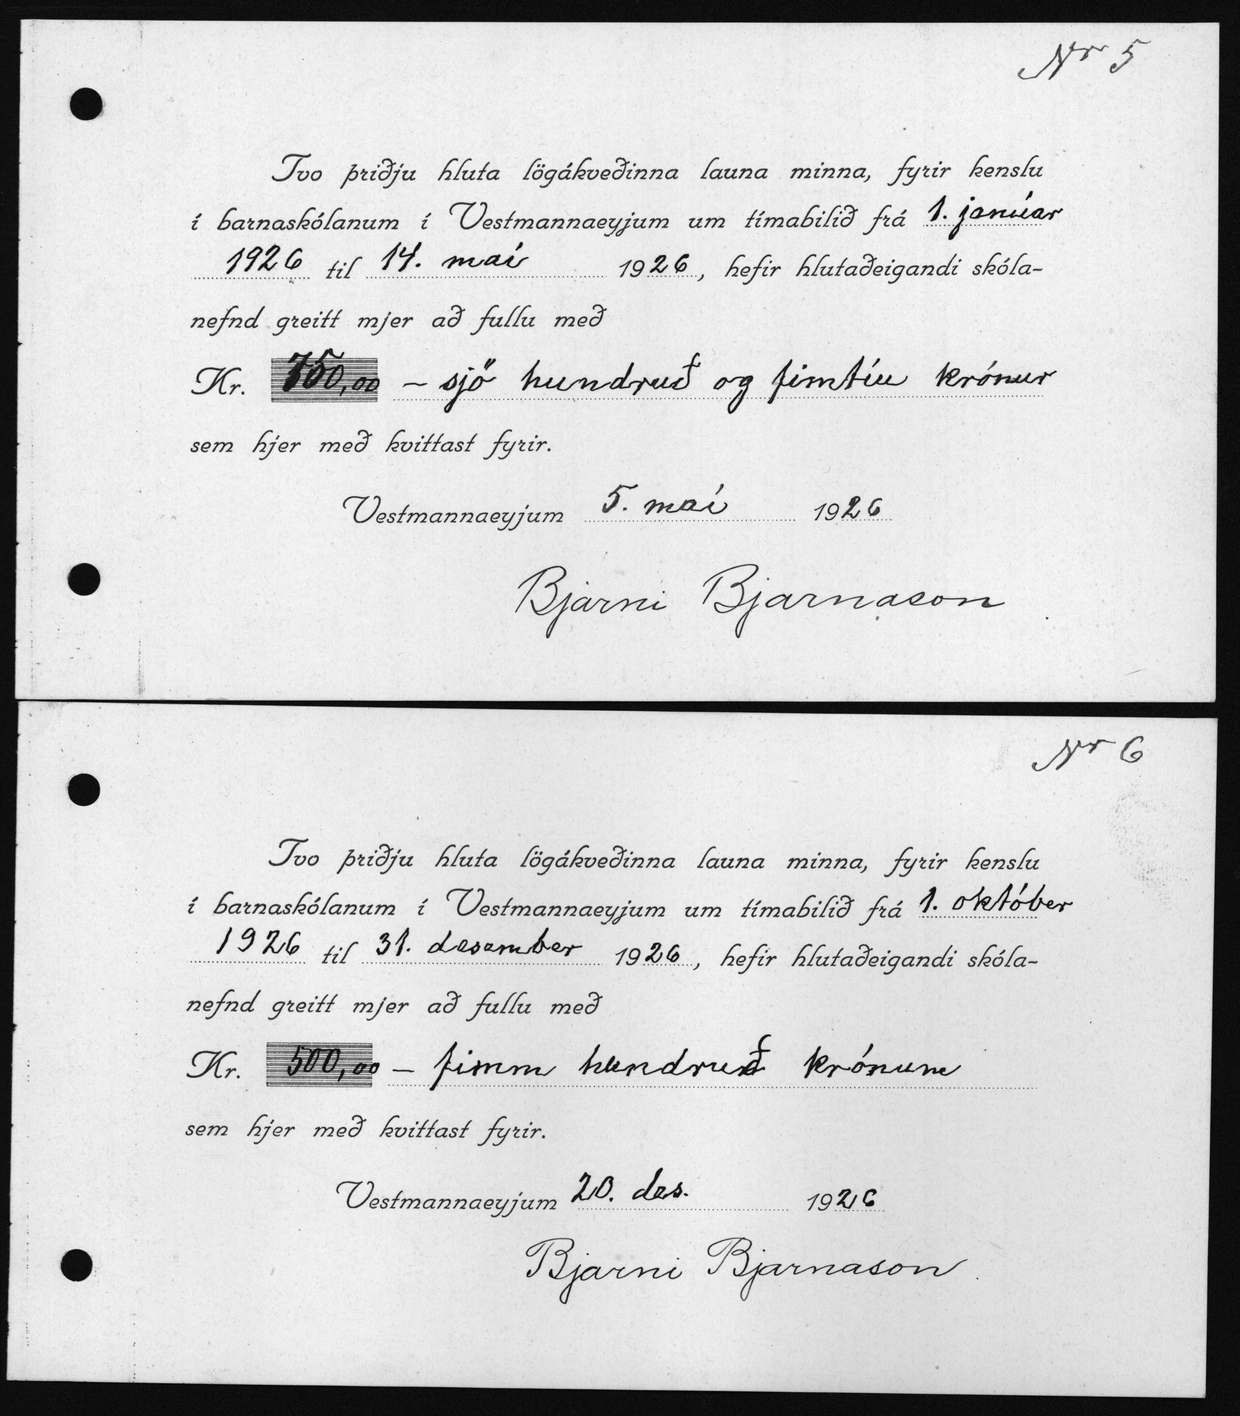 Nr 5
Tvo þriðju hluta lögákveðinna launa minna, fyrir kenslu
í barnaskólanum í Vestmannaeyjum um tímabilið frá 1. janúar
1926 til 14. maí 1926, hefir hlutaðeigandi skóla-
nefnd greitt mjer að fullu með
Kr. 750,00 – sjö hundruð og fimtíu krónur
sem hjer með kvittast fyrir.
Vestmannaeyjum 5. maí 1926
Bjarni Bjarnason
Nr 6
Tvo þriðju hluta lögákveðinna launa minna, fyrir kenslu
í barnaskólanum í Vestmannaeyjum um tímabilið frá 1. október
1926 til 31. desember 1926, hefir hlutaðeigandi skóla-
nefnd greitt mjer að fullu með
Kr. 500,00 – fimm hundruð krónum
sem hjer með kvittast fyrir.
Vestmannaeyjum 20. des. 1926
Bjarni Bjarnason